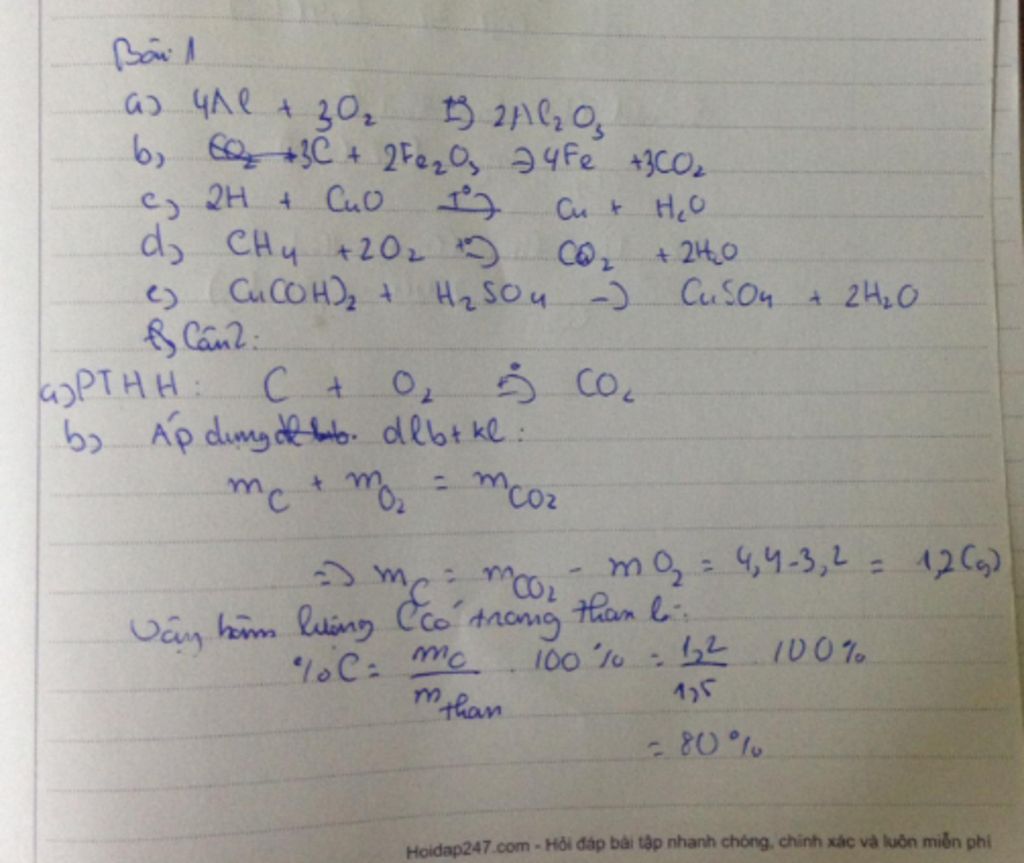 Bài 1
a) 4Al + 3O2 t°→ 2Al2O3
b) CO2 + 3C + 2Fe2O3 → 4Fe + 3CO2
c) 2H + CuO T°→ Cu + H2O
d) CH4 + 2O2 t°→ CO2 + 2H2O
e) Cu(OH)2 + H2SO4 → CuSO4 + 2H2O
Câu 2:
a) PTHH: C + O2 t°→ CO2
b) Áp dụng dlbtkl:
mC + mO2 = mCO2
=> mC = mCO2 - mO2 = 4,4-3,2 = 1,2(g)
Vậy hàm lượng C có trong than là:
%C = mC/mthan . 100% = 1,2/1,5 100%
= 80%
Hoidap247.com - Hỏi đáp bài tập nhanh chóng, chính xác và luôn miễn phí